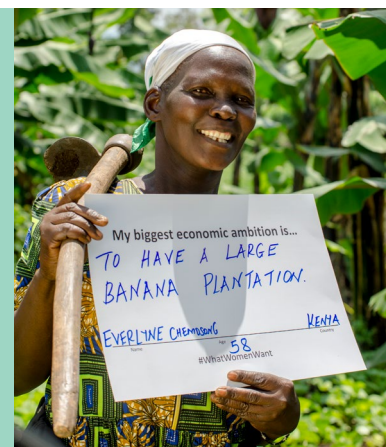 My biggest economic ambition is...
TO HAVE A LARGE
BANANA PLANTATION.
EVERLYNE CHEMSONG 58 KENYA
Name Age Country
#WhatWomenWant